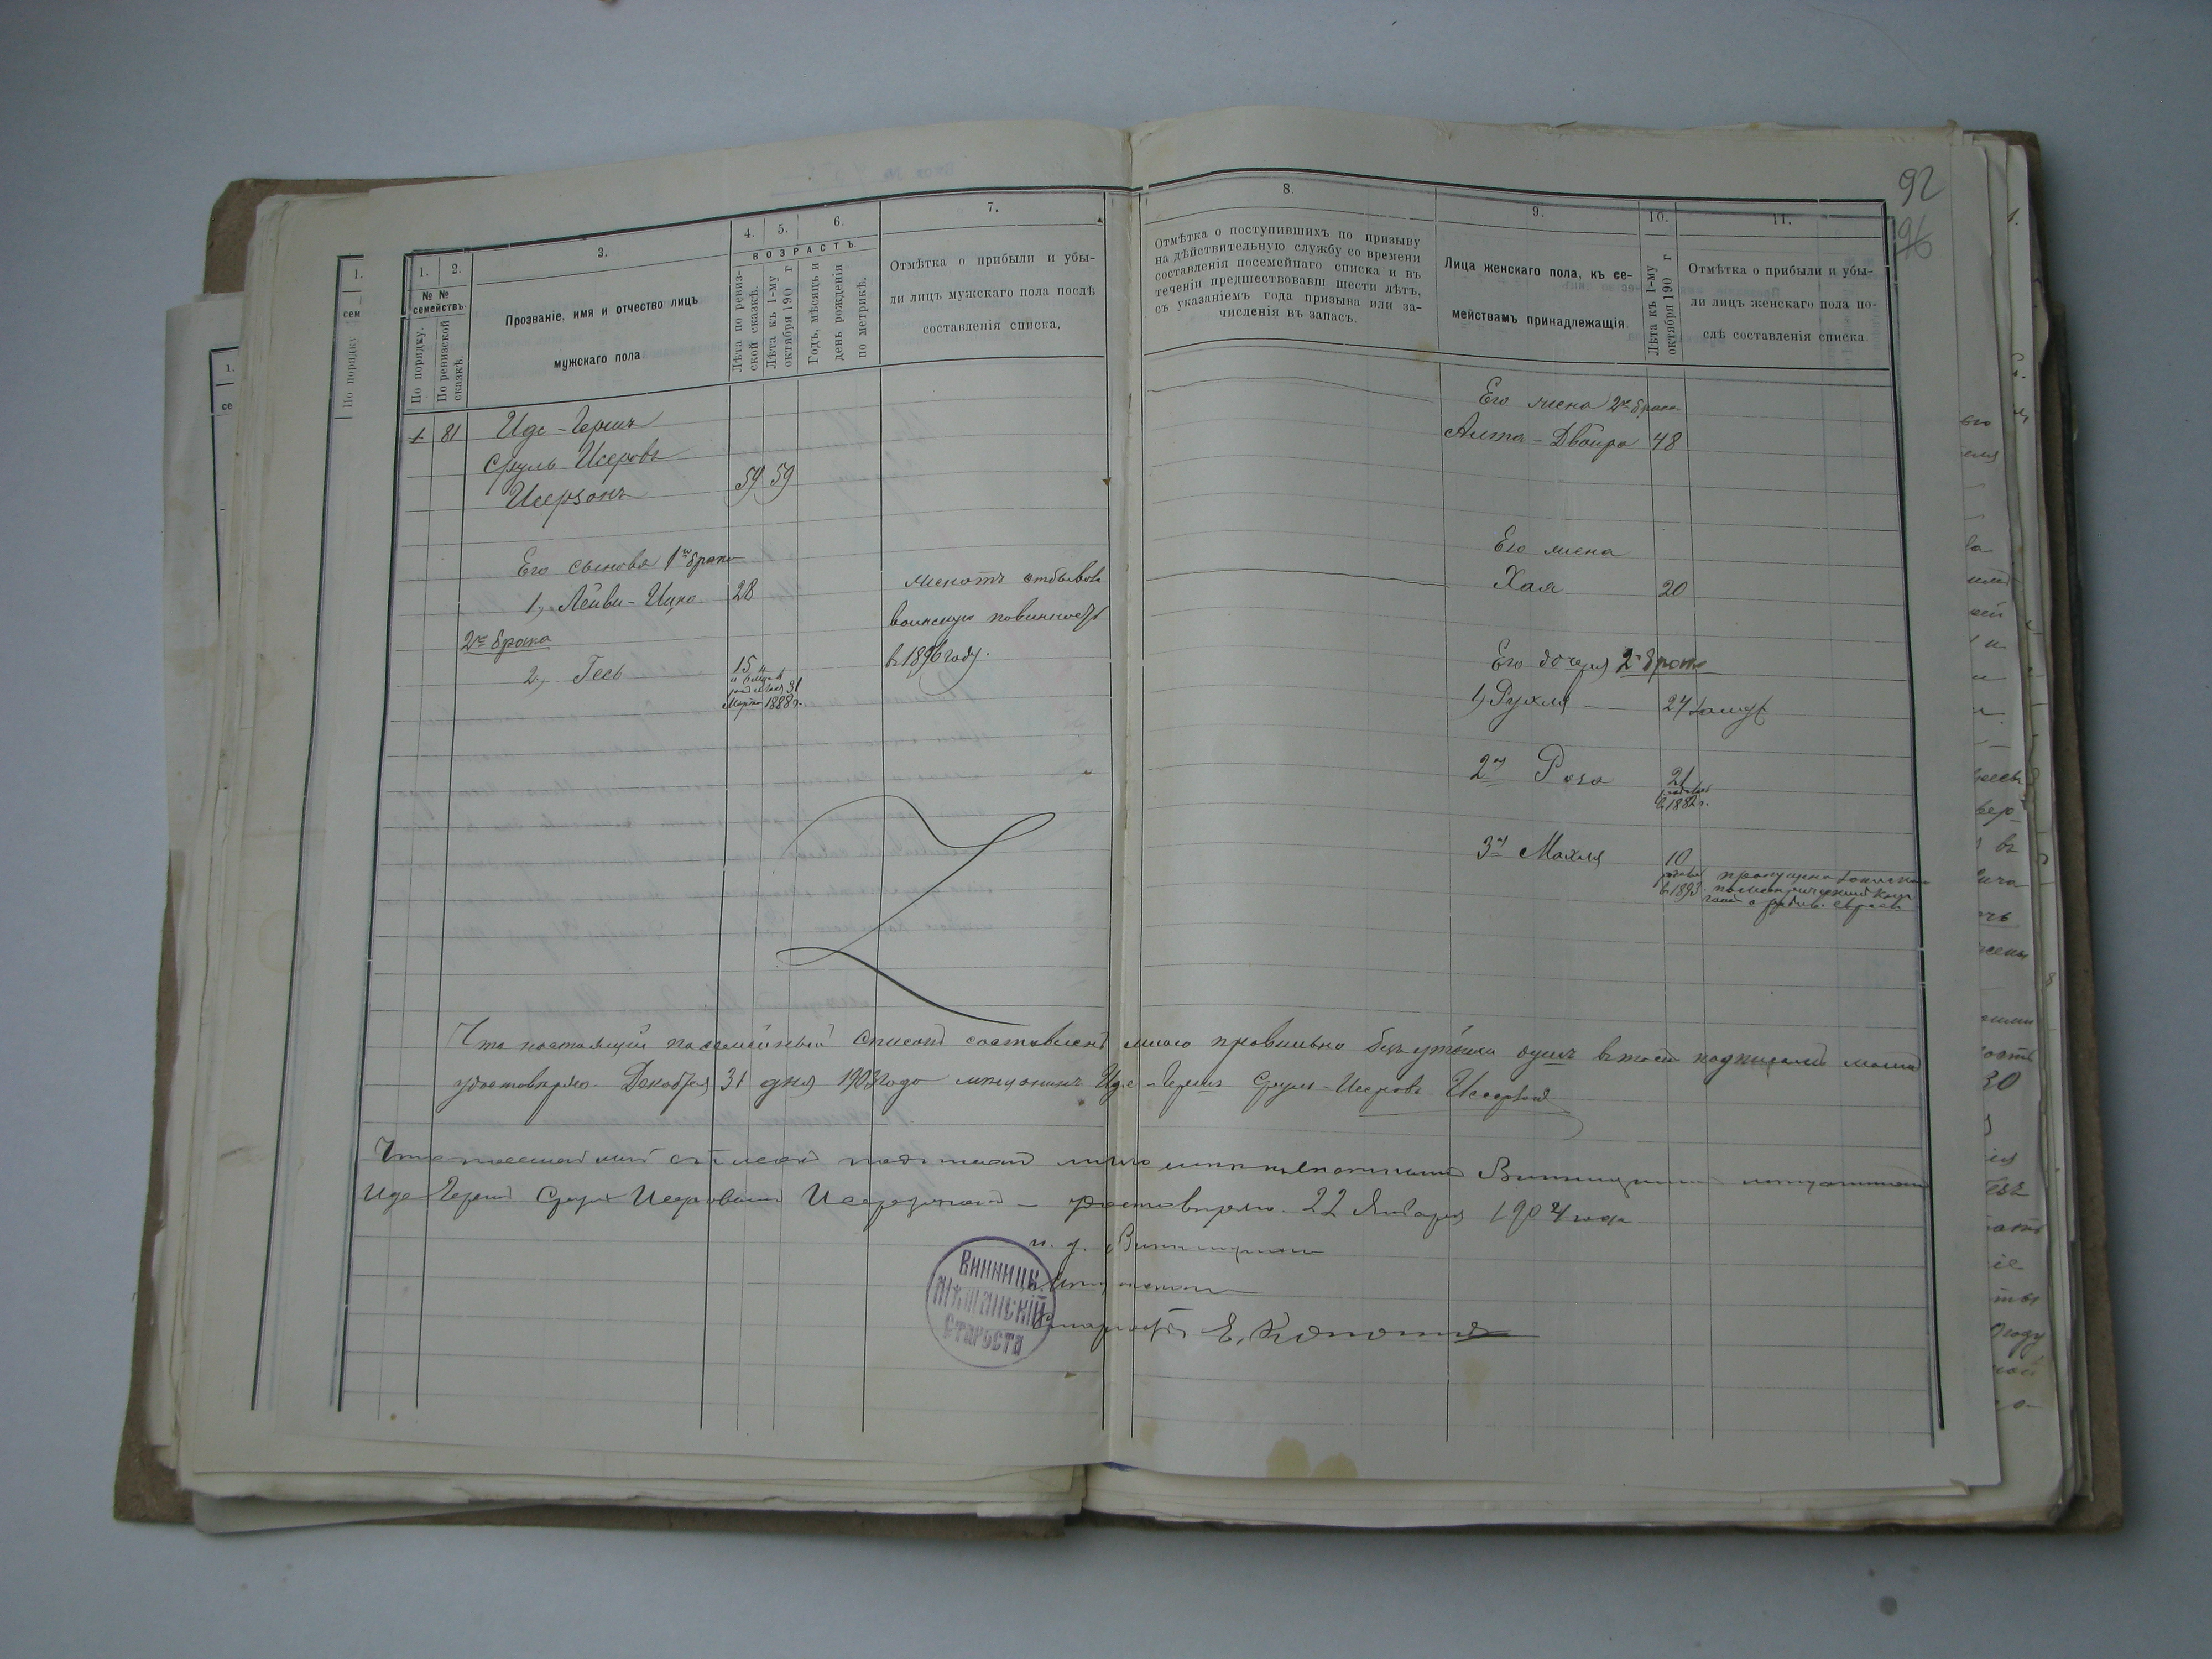 92
96
1.
2.
3.
4.
5.
6.
7.
№ №
семействъ.
По порядку.
По ревизской сказкѣ.
Прозваніе, имя и отчество лицъ
мужскаго пола
ВОЗРАСТЪ
Лѣта по ревизской сказкѣ.
Лѣта къ 1-му октября 190 г
Годъ, мѣсяцъ и день рожденія по метрикѣ.
Отмѣтка о прибыли и убы-
ли лицъ мужскаго пола послѣ
составленія списка.
8.
9.
10.
11.
Отмѣтка о поступившихъ по призыву
на дѣйствительную службу со времени
составленія посемейнаго списка и въ
теченіи предшествовавш шести лѣтъ,
съ указаніемъ года призыва или за-
численія въ запасъ.
Лица женскаго пола, къ се-
мействамъ принадлежащія.
Лѣта къ 1-му октября 190 г
Отмѣтка о прибыли и убы-
ли лицъ женскаго пола по-
слѣ составленія списка.
1 81 Иде-Гершъ
Сруль-Исеровъ
Исерзонъ 59 59
Его сыновья 1го брака
1, Лейви-Ицко 28
2го брака
2, Гесь 15
родился 31
Марта 1888 г.
женатъ отбывалъ
воинскую повинность
в 1896 году.
Его жена 2го брака
Алта-Двойра 48
Его жена
Хая 20
Его дочеря 2го брака
1, Рухля 24 замуж
2я Роза 21
в 1882 г.
3я Махля 10
в 1893 пропущена
Что настоящій посемейный списокъ составленъ мною правильно безъ утайки душъ в томъ подписомъ моимъ
удостовѣряю. Декабря 31 дня 1903 года мѣщанинъ Иде-Гершъ Сруль-Исеровъ Исерзонъ
Что настоящій списокъ подписанъ лично Винницкимъ мѣщаниномъ
Иде Гершъ Сруль Исеровымъ Исерзономъ — удостовѣряю. 22 Января 1904 года
и. д. Винницкаго
Мѣщанскаго
Старосты Е.
ВИННИЦК.
МѢЩАНСКІЙ
СТАРОСТА